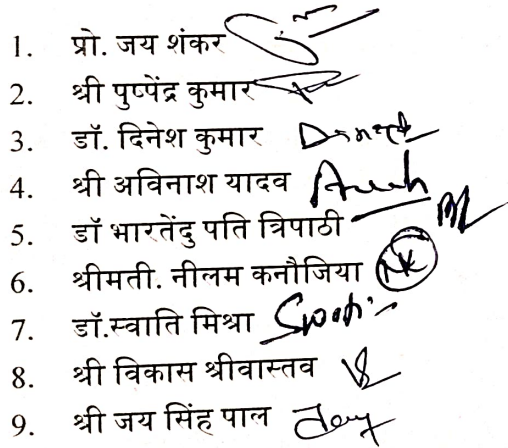 1. प्रो. जय शंकर
2. श्री पुष्पेंद्र कुमार
3. डॉ. दिनेश कुमार Dinesh
4. श्री अविनाश यादव
5. डॉ भारतेंदु पति त्रिपाठी
6. श्रीमती. नीलम कनौजिया NK
7. डॉ.स्वाति मिश्रा Swati
8. श्री विकास श्रीवास्तव
9. श्री जय सिंह पाल